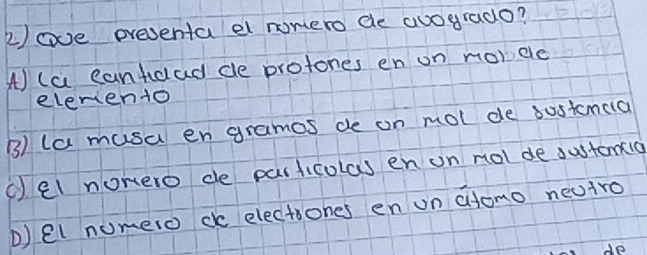 2) Que presenta el nomero de avogrado?
A) La cantidad de protones en un mol de
elemento
B) La masa en gramos de un mol de sustancia
C) el nomero de particolas en un mol de sustancia
D) El nomero de electrones en un átomo neutro
de